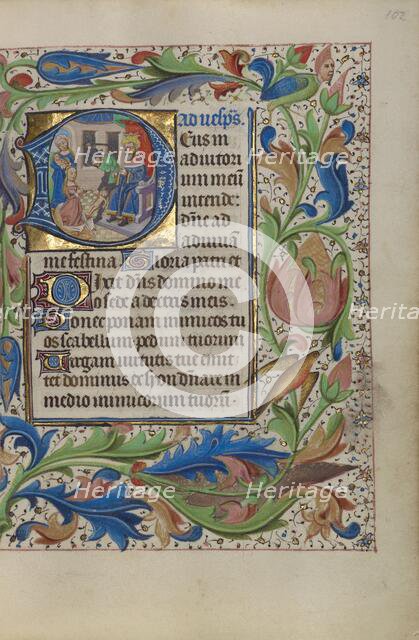 102
ad vesp̄s.
Deus in
adiutori
um meū
intende:
dn̄e ad
adiuuā
me festina Gloria patri et
Dixit dn̄s domino me
o sede a dextris meis
Donec ponam inimicos tu
os scabellum pedum tuorum
Virgam uirtutis tue emit
tet dominus ex syon dn̄are in
medio inimicorum tuorū.
Heritage
Heritage
Heritage
Heritage
Heritage
Heritage
Heritage
Heritage
Heritage